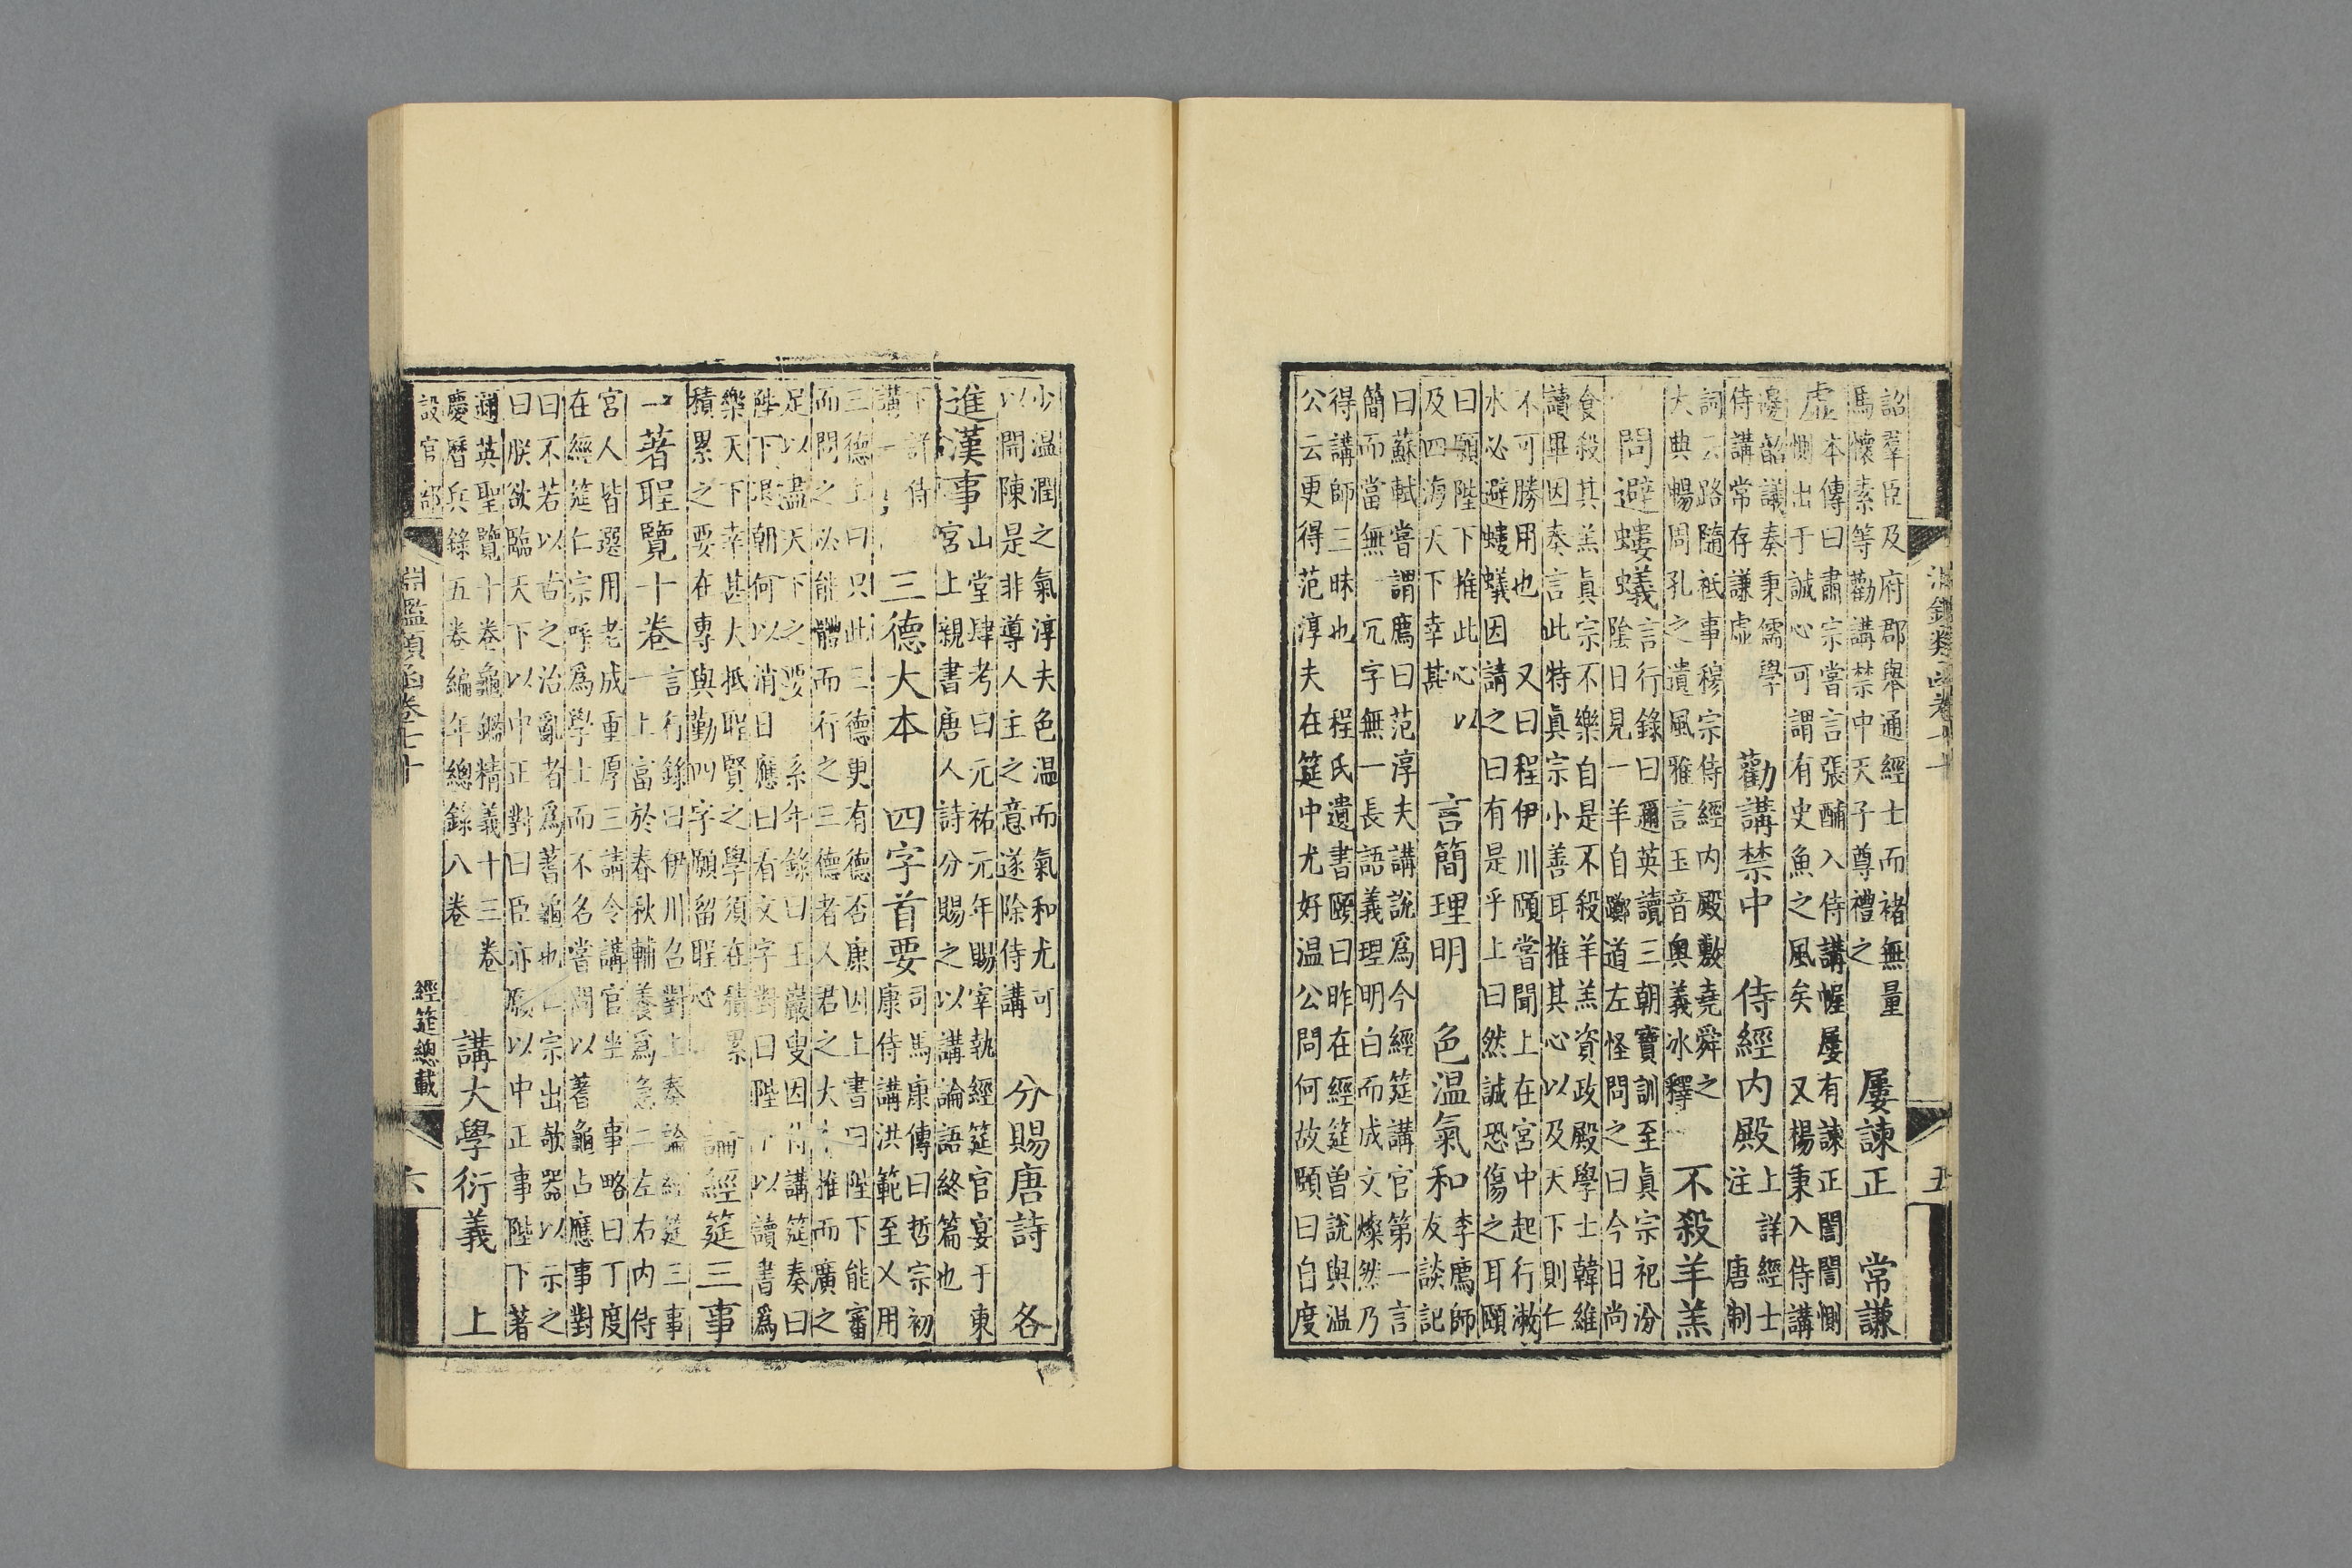 五
詔羣臣及府郡舉通經士而褚無量
馬懷素等勸講禁中天子尊禮之
屢諫正 常謙
虛
本傳曰肅宗嘗言張酺入侍講幄屢有諫正誾誾惻
惻出于誠心可謂有史魚之風矣 又楊秉入侍講
邊韶議奏秉儒學
侍講常存謙虛
勸講禁中 侍經内殿
上詳經士
注 唐制
詞云路隨衹事穆宗侍經内殿敷堯舜之
大典暢周孔之遺風雅言玉音奧義冰釋
不殺羊羔
問避螻蟻
言行錄曰邇英讀三朝寶訓至眞宗祀汾
陰日見一羊自躑道左怪問之曰今日尚
食殺其羔眞宗不樂自是不殺羊羔資政殿學士韓維
讀畢因奏言此特眞宗小善耳推其心以及天下則仁
不可勝用也 又曰程伊川頤嘗聞上在宮中起行漱
水必避螻蟻因請之曰有是乎上曰然誠恐傷之耳頤
曰願陛下推此心以
及四海天下幸甚
言簡理明 色温氣和
李廌師
友談記
曰蘇軾嘗謂廌曰范淳夫講說爲今經筵講官第一言
簡而當無一冗字無一長語義理明白而成文燦然乃
得講師三昧也 程氏遺書頤曰昨在經筵曽說與温
公云更得范淳夫在筵中尤好温公問何故頤曰自度
少温潤之氣淳夫色温而氣和尤可
以開陳是非導人主之意遂除侍講
分賜唐詩 各
進漢事
山堂肆考曰元祐元年賜宰執經筵官宴于東
宮上親書唐人詩分賜之以講論語終篇也
下詳侍
講一
三德大本 四字首要
司馬康傳曰哲宗初
康侍講洪範至乂用
三德上曰只此三德更有德否康因上書曰陛下能審
而問之必能體而行之三德者人君之大本推而廣之
足以盡天下之要 系年錄曰王巖叟因侍講筵奏曰
陛下退朝何以消日應曰看文字對曰陛下以讀書爲
樂天下幸甚大抵聖賢之學須在積累
積累之要在專與勤四字願留聖心
論經筵三事
一著聖覽十卷
言行錄曰伊川召對上奏論經筵三事
一上富於春秋輔養爲急二左右内侍
宮人皆選用老成重厚三請令講官坐 事略曰丁度
在經筵仁宗呼爲學士而不名嘗問以蓍龜占應事對
曰不若以古之治亂者爲蓍龜也仁宗出欹器以示之
曰朕欲臨天下以中正對曰臣亦願以中正事陛下著
邇英聖覽十卷龜鑑精義十三卷
慶曆兵錄五卷編年總錄八卷
講大學衍義 上
設官部 淵鑑類函卷七十 經筵總載 六